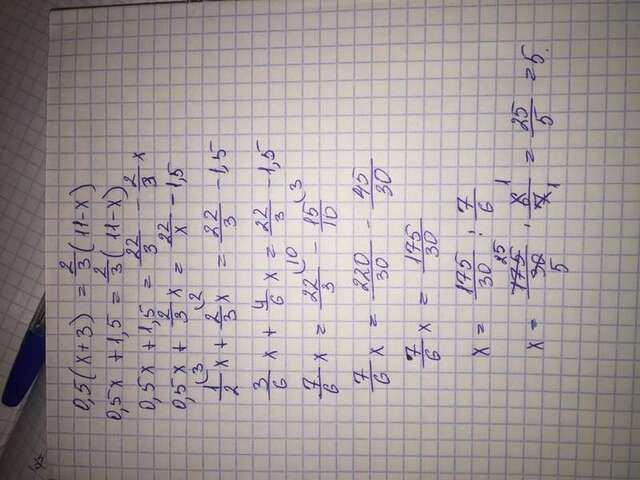 0,5(x+3) = 2/3(11-x)
0,5x+1,5 = 2/3(11-x)
0,5x+1,5 = 22/3 - 2/3 x
0,5x + 2/3 x = 22/x - 1,5
1/2 (3 x + 2/3 (2 x = 22/3 - 1,5
3/6 x + 4/6 x = 22/3 - 1,5
7/6 x = 22/3 (10 - 15/10 (3
7/6 x = 220/30 - 45/30
7/6 x = 175/30
x = 175/30 : 7/6
x = 175 25/30 5 · 6 1/7 1 = 25/5 = 5.